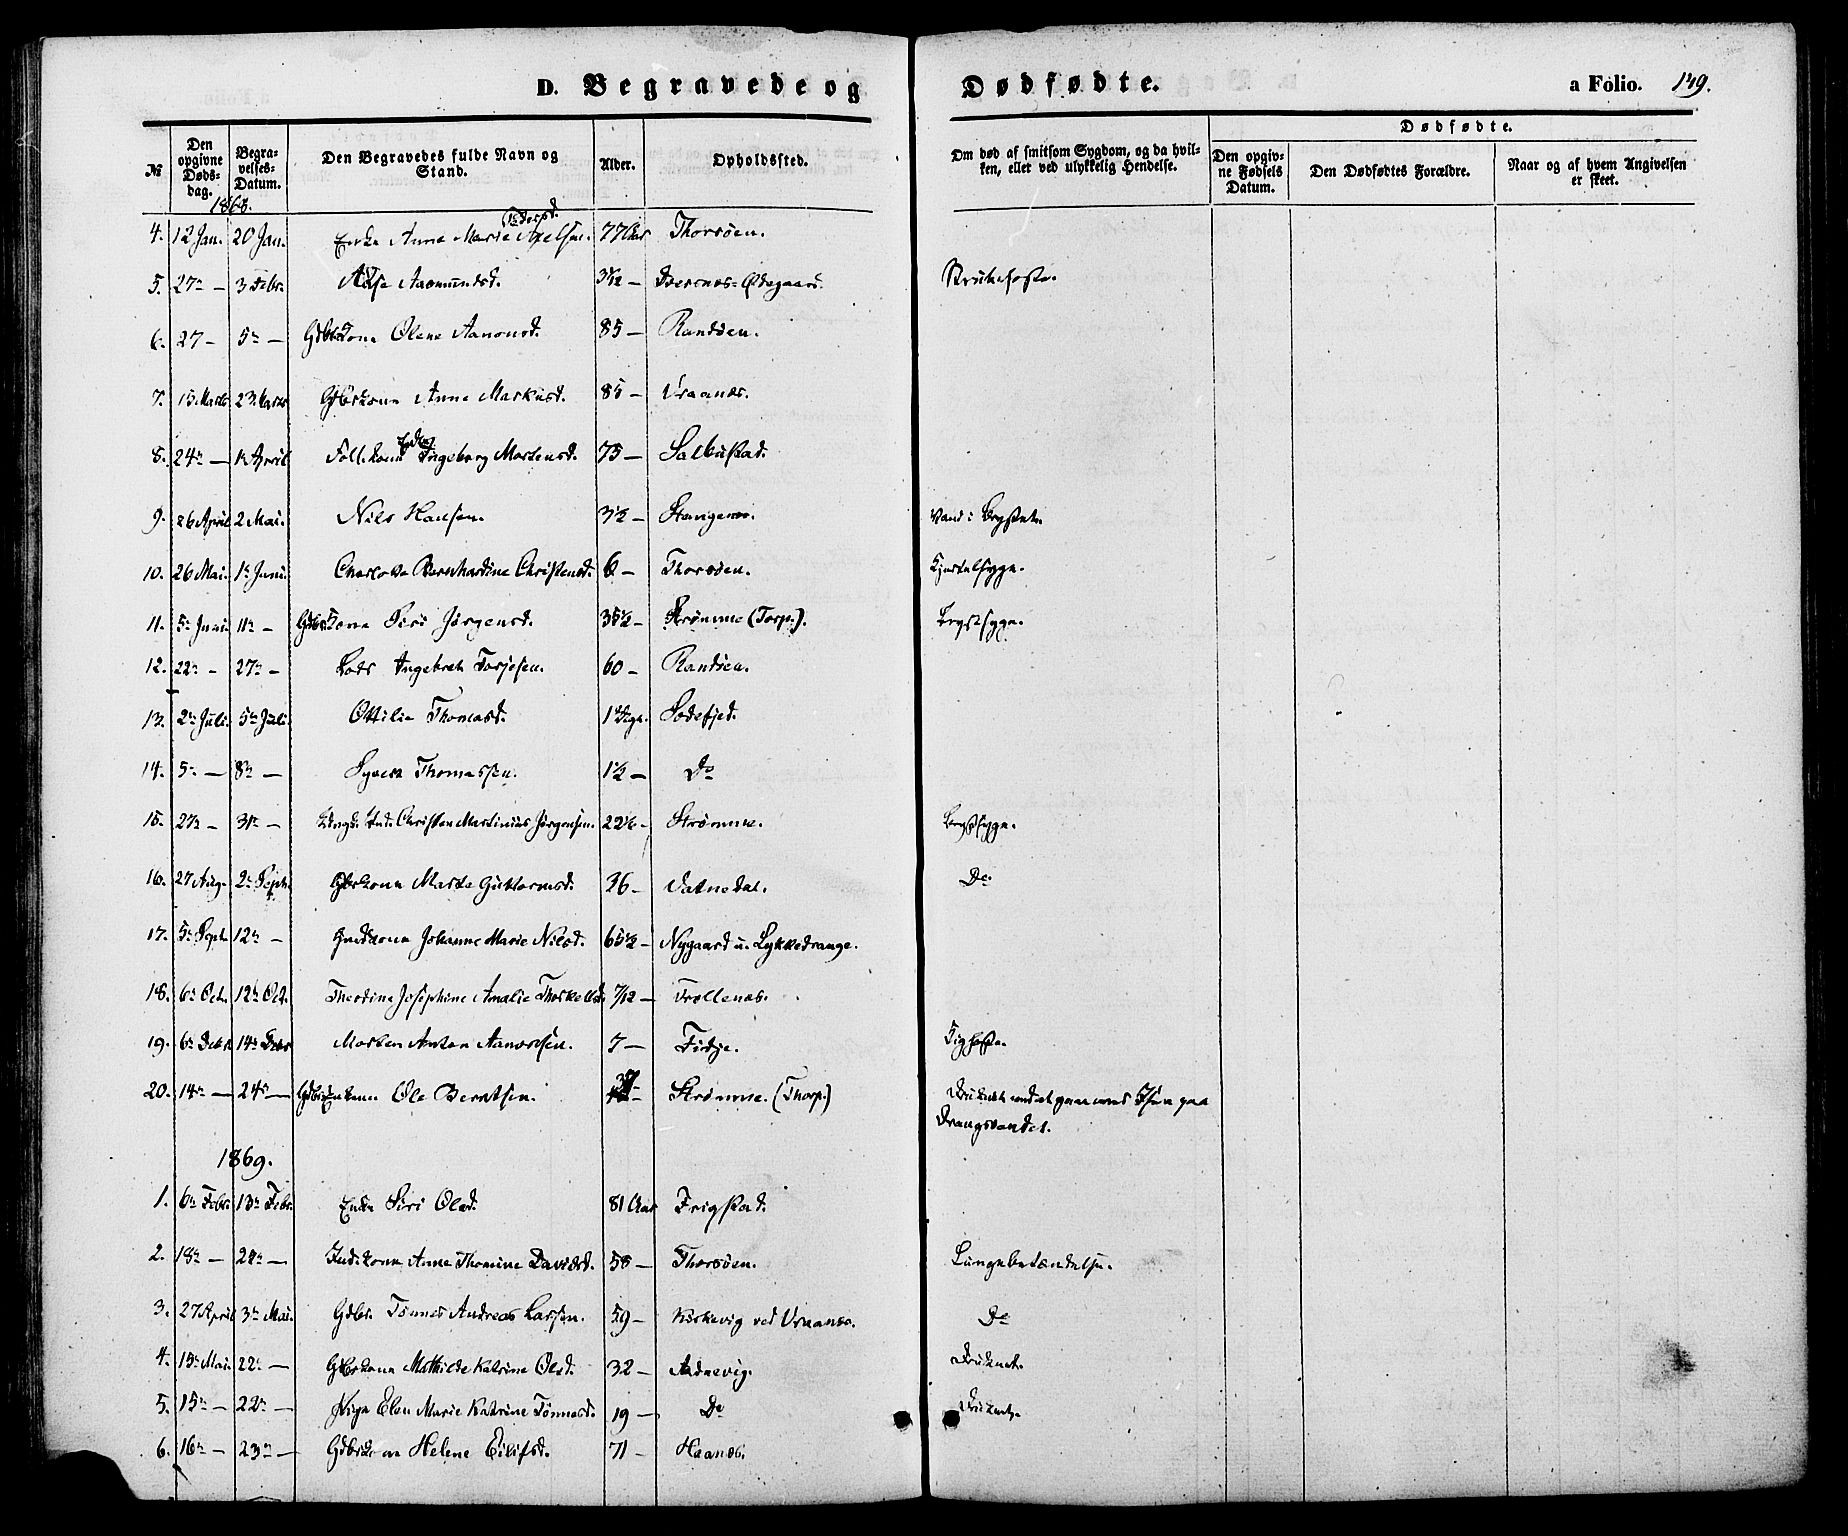 D. Begravede og Dødfødte. a Folio. 149.
№
Den opgivne Døds-dag.
Begra-velses-Datum.
Den Begravedes fulde Navn og Stand.
Alder.
Opholdssted.
Om død af smitsom Sygdom, og da hvil-ken, eller ved ulykkelig Hendelse.
Dødfødte.
Den opgiv-ne Fødsels Datum.
Den Dødfødtes Forældre.
Naar og af hvem Angivelsen er skeet.
1868.
4. 12 Jan. 20 Jan. Enke Anne Marie Axelsen. 77 Aar Thorsøen.
5. 27 — 3 Febr. Aase Aasmundsd. — Ødegaard. Strubehoste.
6. 27 — 5 — Gdbrkone Olene Aanonsd. 85 — Randøen.
7. 15 Marts 23 Marts Gdbrkone Anne Markusd. 85 — Vraanes.
8. 24 — 1 April Ingeborg Mortensd. 75 — Salbustad.
9. 26 April 2 Mai. Nils Hansen. 3½ — Stangenes. Vand i Brystet.
10. 26 Mai. 1 Juni. Charlotte Bernhardine Christensd. 6 — Thorsøen. Kjertelsyge.
11. 5 Juni. 11 — Gdbrkone Siri Jørgensd. 35½ — Strømme (Torp.). Brystsyge.
12. 22 — 27 — Lods Ingebret Torjesen. 60 — Randøen.
13. 2 Juli. 5 Juli. Ottilia Thomasd. Sodefjed.
14. 5 — 8 — Syvert Thomassen. 1½ — Do
15. 27 — 31 — Christen Martinius Jørgensen. 22½ — Strømme. Brystsyge.
16. 27 Aug. 2 Septb. Gbrkone Marte Guttormsd. 36 — Vatnedal. Do.
17. 5 Septb. 12 — Indkone Johanne Marie Nilsd. 65½ — Nygaard u. Lykkedrange.
18. 6 Oct. 12 Oct. Theodine Josephine Amalie Thorkelsd. 7/12 — Trollenes.
19. 6 Debr 14 Debr Morten Anton Aanonsen. 7 — Fidje. Kighoste.
20. 14 — 24 — Ole Berntsen. 37 — Strømme. (Thorp.) Druknet ved at gaa ned Isen paa
Drangsvandet.
1869.
1. 6 Febr. 13 Febr. Enke Siri Olsd. 81 Aar Frigstad.
2. 18 — 24 — Indkone Anne Thomine Davidsd. 58 — Thorsøen. Lungebetændelse.
3. 27 April 3 Mai. Gdbr. Tønnes Andreas Larsen. 59 — Kirkevig ved Vraanes. Do
4. 15 Mai. 22 — Gdbrkone Mathilde Katrine Olsd. 32 — Aadnevig. Druknet.
5. 15 — 22 — Pige Elen Marie Katrine Tønnesd. 19 — Do Druknet.
6. 16 — 23 — Gdbrkone Helene Eilifsd. 71 — Haanes.